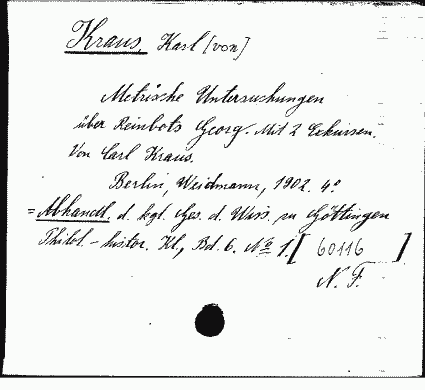 Kraus, Karl [von]
Metrische Untersuchungen
über Reinbots Georg. Mit 2 Exkursen.
Von Carl Kraus.
Berlin, Weidmann, 1902. 4°
= Abhandl. d. kgl. Ges. d. Wiss. zu Göttingen
Philol.-histor. Kl., Bd. 6. No 1. [60116]
N. F.